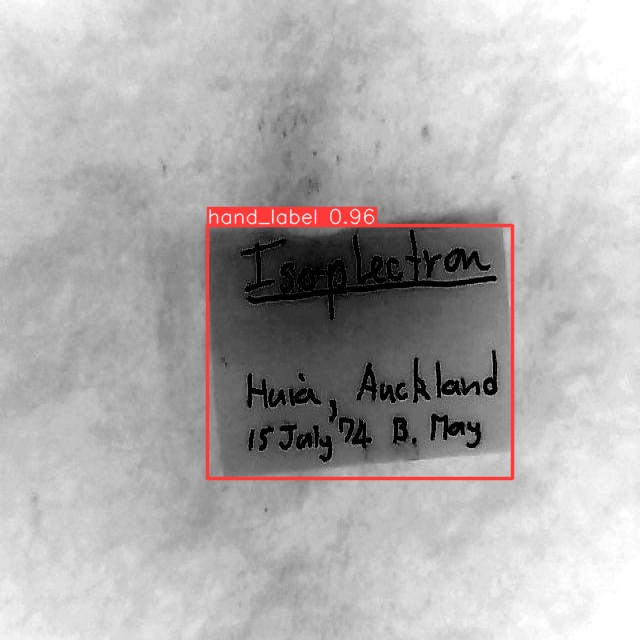 hand_label 0.96
Isoplectron
Huia, Auckland
15 July '74 B. May